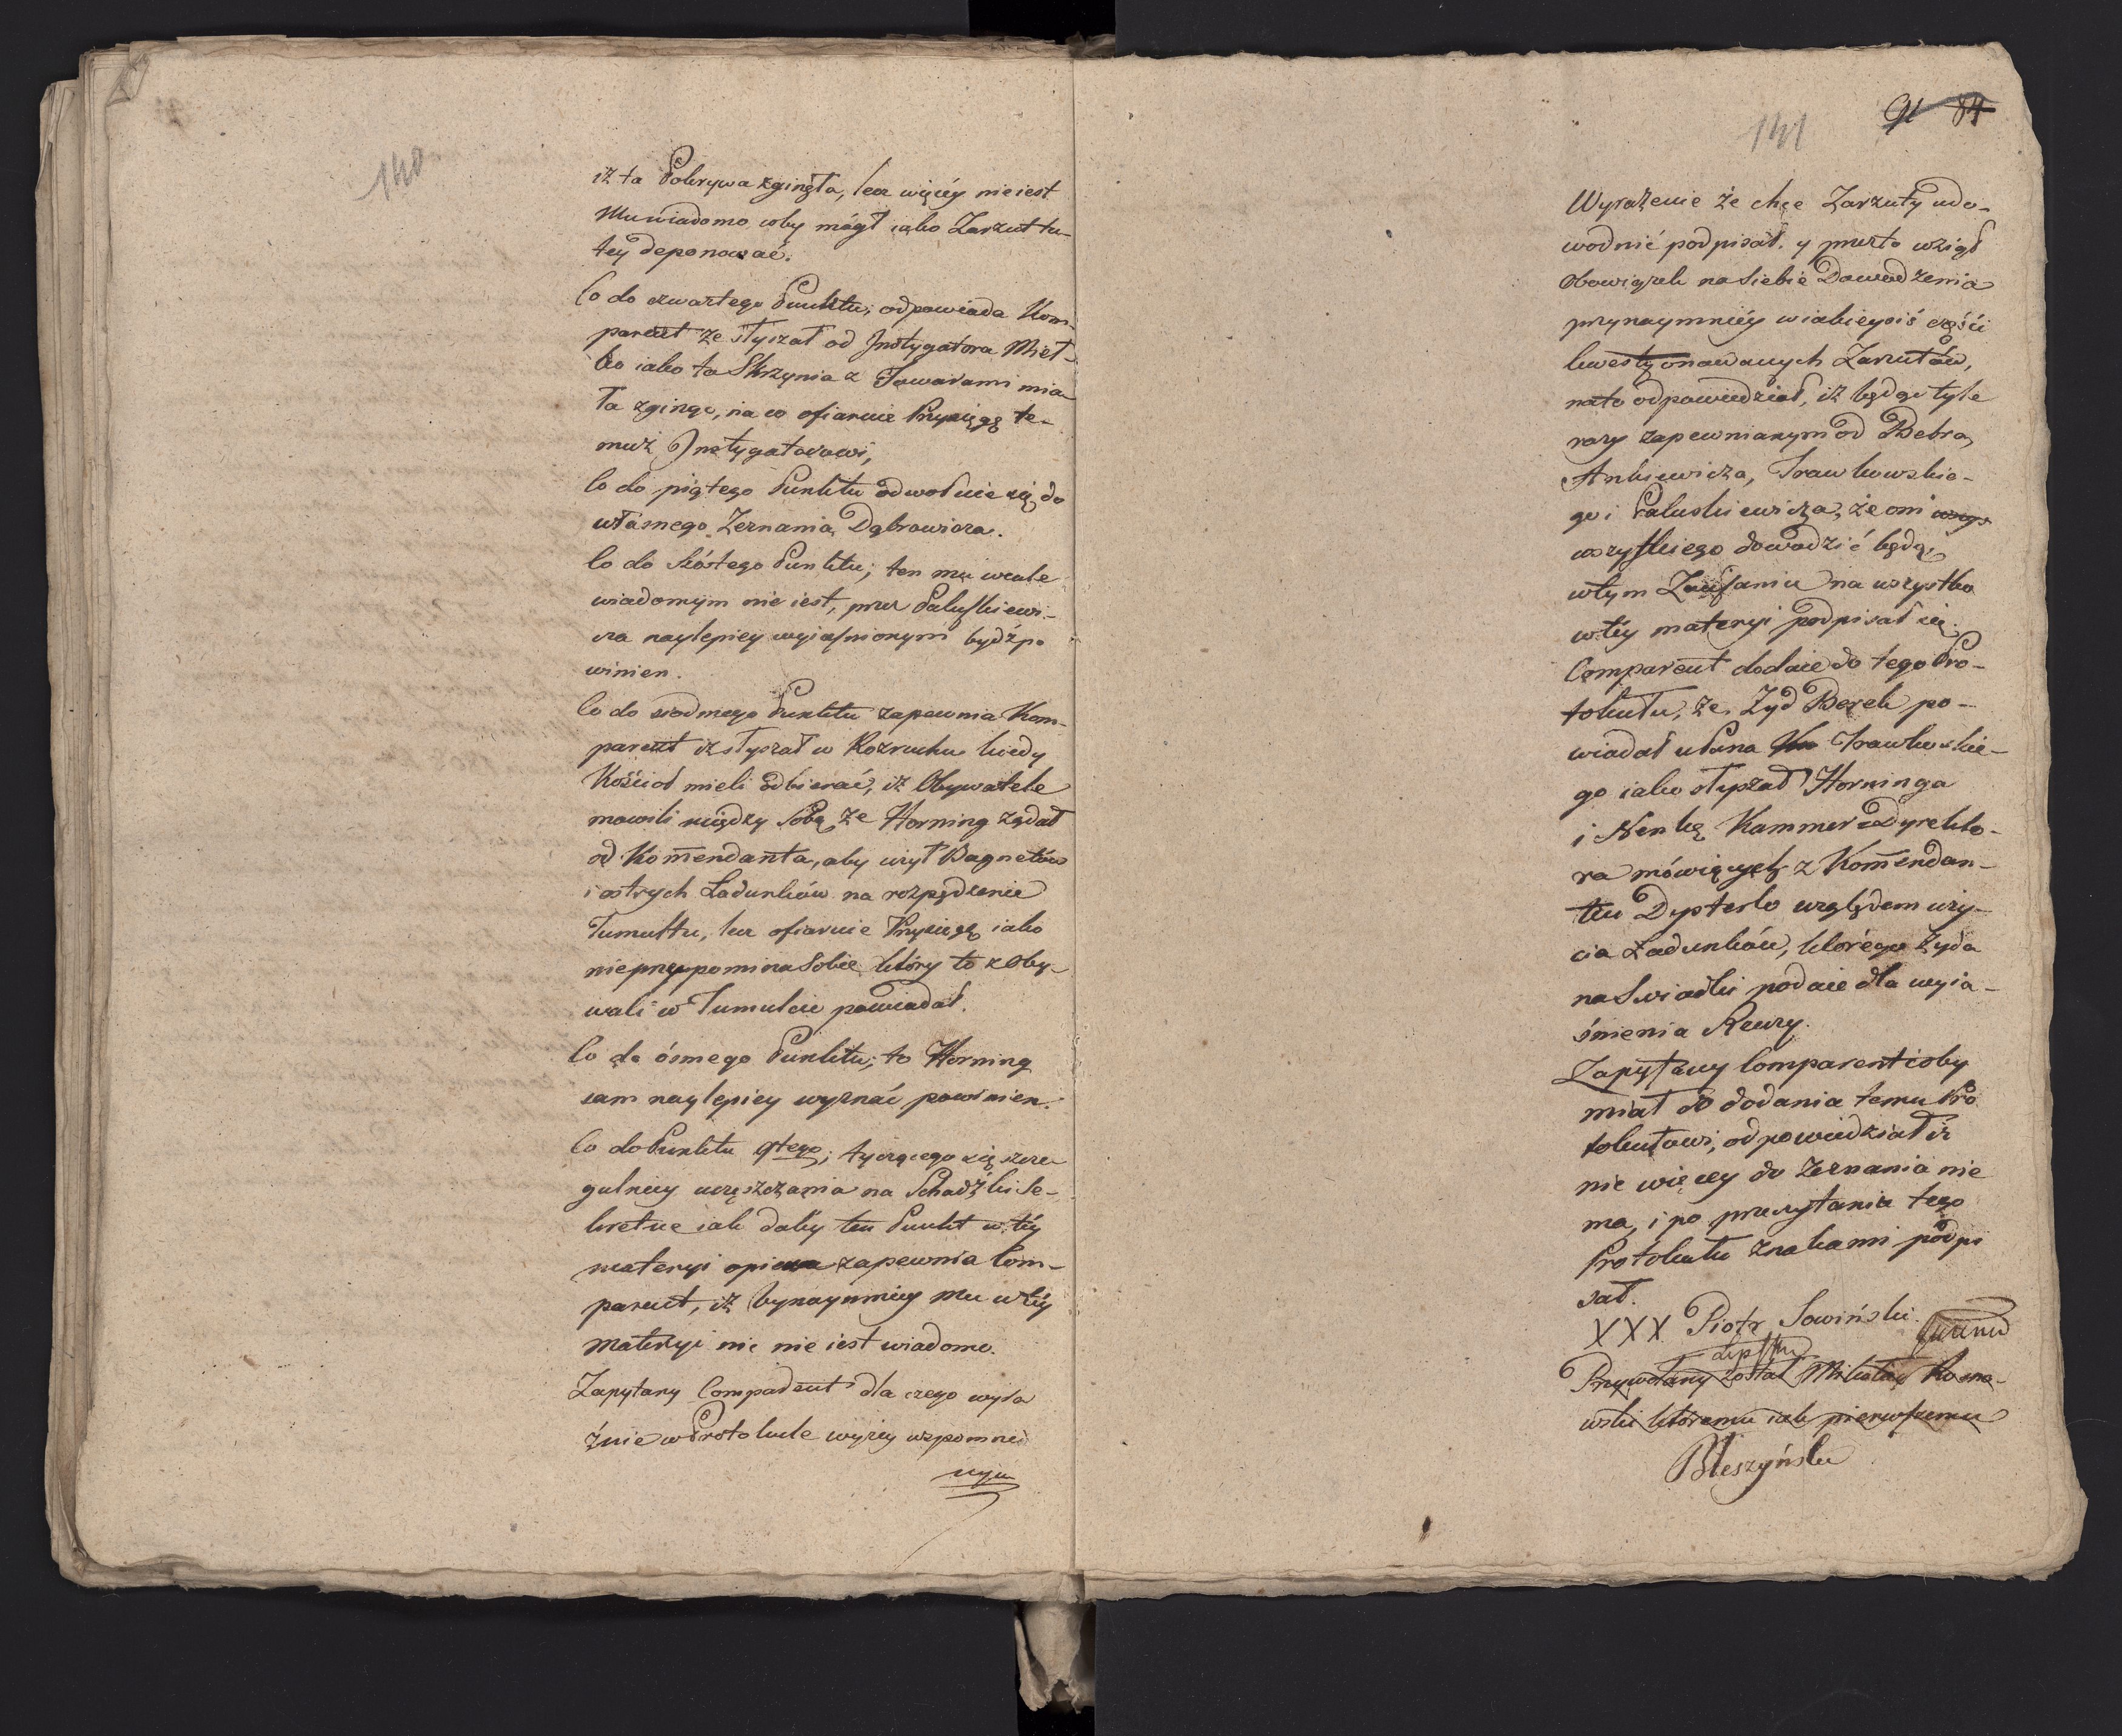 140
iż ta Pokrywa zginęła, lecz więcéy nieiest
Mu wiadomo coby mógł iako Zarzut tu-
tey deponować.
Co do czwartego Punktu; odpowiada Kom-
parent że słyszał od Instygatora Miet-
ko iako ta Skrzynia z Towarami mia-
ła zginąć, na co ofiaruie Przysięgę te-
muż Instygatorowi,
Co do piątego Punktu odwołuie się do
własnego Zeznania Dąbrowicza.
Co do szóstego Punktu; ten mu wcale
wiadomym nie iest, przez Paluskiewi-
cza naylepiey wyiasnionym bydź po
winien.
Co do siodmego Punktu zapewnia Kom-
parent iż słyszał w Rozruchu kiedy
Kościoł mieli odbierać, iż Obywatele
mowili między Sobą że Horning żądał
od Kom̄endanta, aby użył Bagnetów
i ostrych Ładunków na rozpędzenie
Tumultu, lecz ofiaruie Przysięgę iako
nie przypomina Sobie który to z Oby-
wali w Tumulcie powiadał.
Co do ósmego Punktu; to Horning
sam naylepiey wyznać powinien.
Co do Punktu 9tego; tyczącego się szcze
gulniey uczęszczania na Schadzki Se-
kretne iak daley ten Punkt w téy
materyi opiewa zapewnia Com-
parent, iż bynaymniey mu w téy
Materyi nic nie iest wiadomo.
Zapytany Comparent dla czego wyra
źnie w Protokule wyżey wspomnio
nym
141
91 84
Wyrażenie że chce Zarzuty udo-
wodnić podpisał. y przezto wziął
Obowiązek na Siebie Dowodzenia
przynaymniéy w iakieyciś części
kwestyonowanych Zarzutów,
nato odpowiedział, iż będąc tyle
razy zapewnianym od Bebra,
Ankiewicza, Trawkowskie-
go i Paluskiewicza, że oni wszys
wszystkiego dowodzić będą;
w tym Zaufaniu na wszystko
w téy materyi podpisał się.
Comparent dodaie do tego Pro-
tokułu, że Zyd Berek po-
wiadał u Pana Trawkowskie-
go iako słyszał Horninga
i Nenkę Kammer Dyrekto-
ra mówiących z Kom̄endan-
tem Dysterlo względem uży-
cia Ładunków, którego Zyda
na Swiadki podaie dla wyia-
śnienia Rzeczy.
Zapytany Comparent coby
miał do dodania temu Pro
tokułowi, odpowiedział iż
nic więcey do Zeznania nie
ma, i po przeczytaniu tego
Protokułu Znakami podpi
sał.
XXX Piotr Sowiński.
Przywołany został Mikołay Koma-
wski któremu iak pierwszemu
Błeszyński